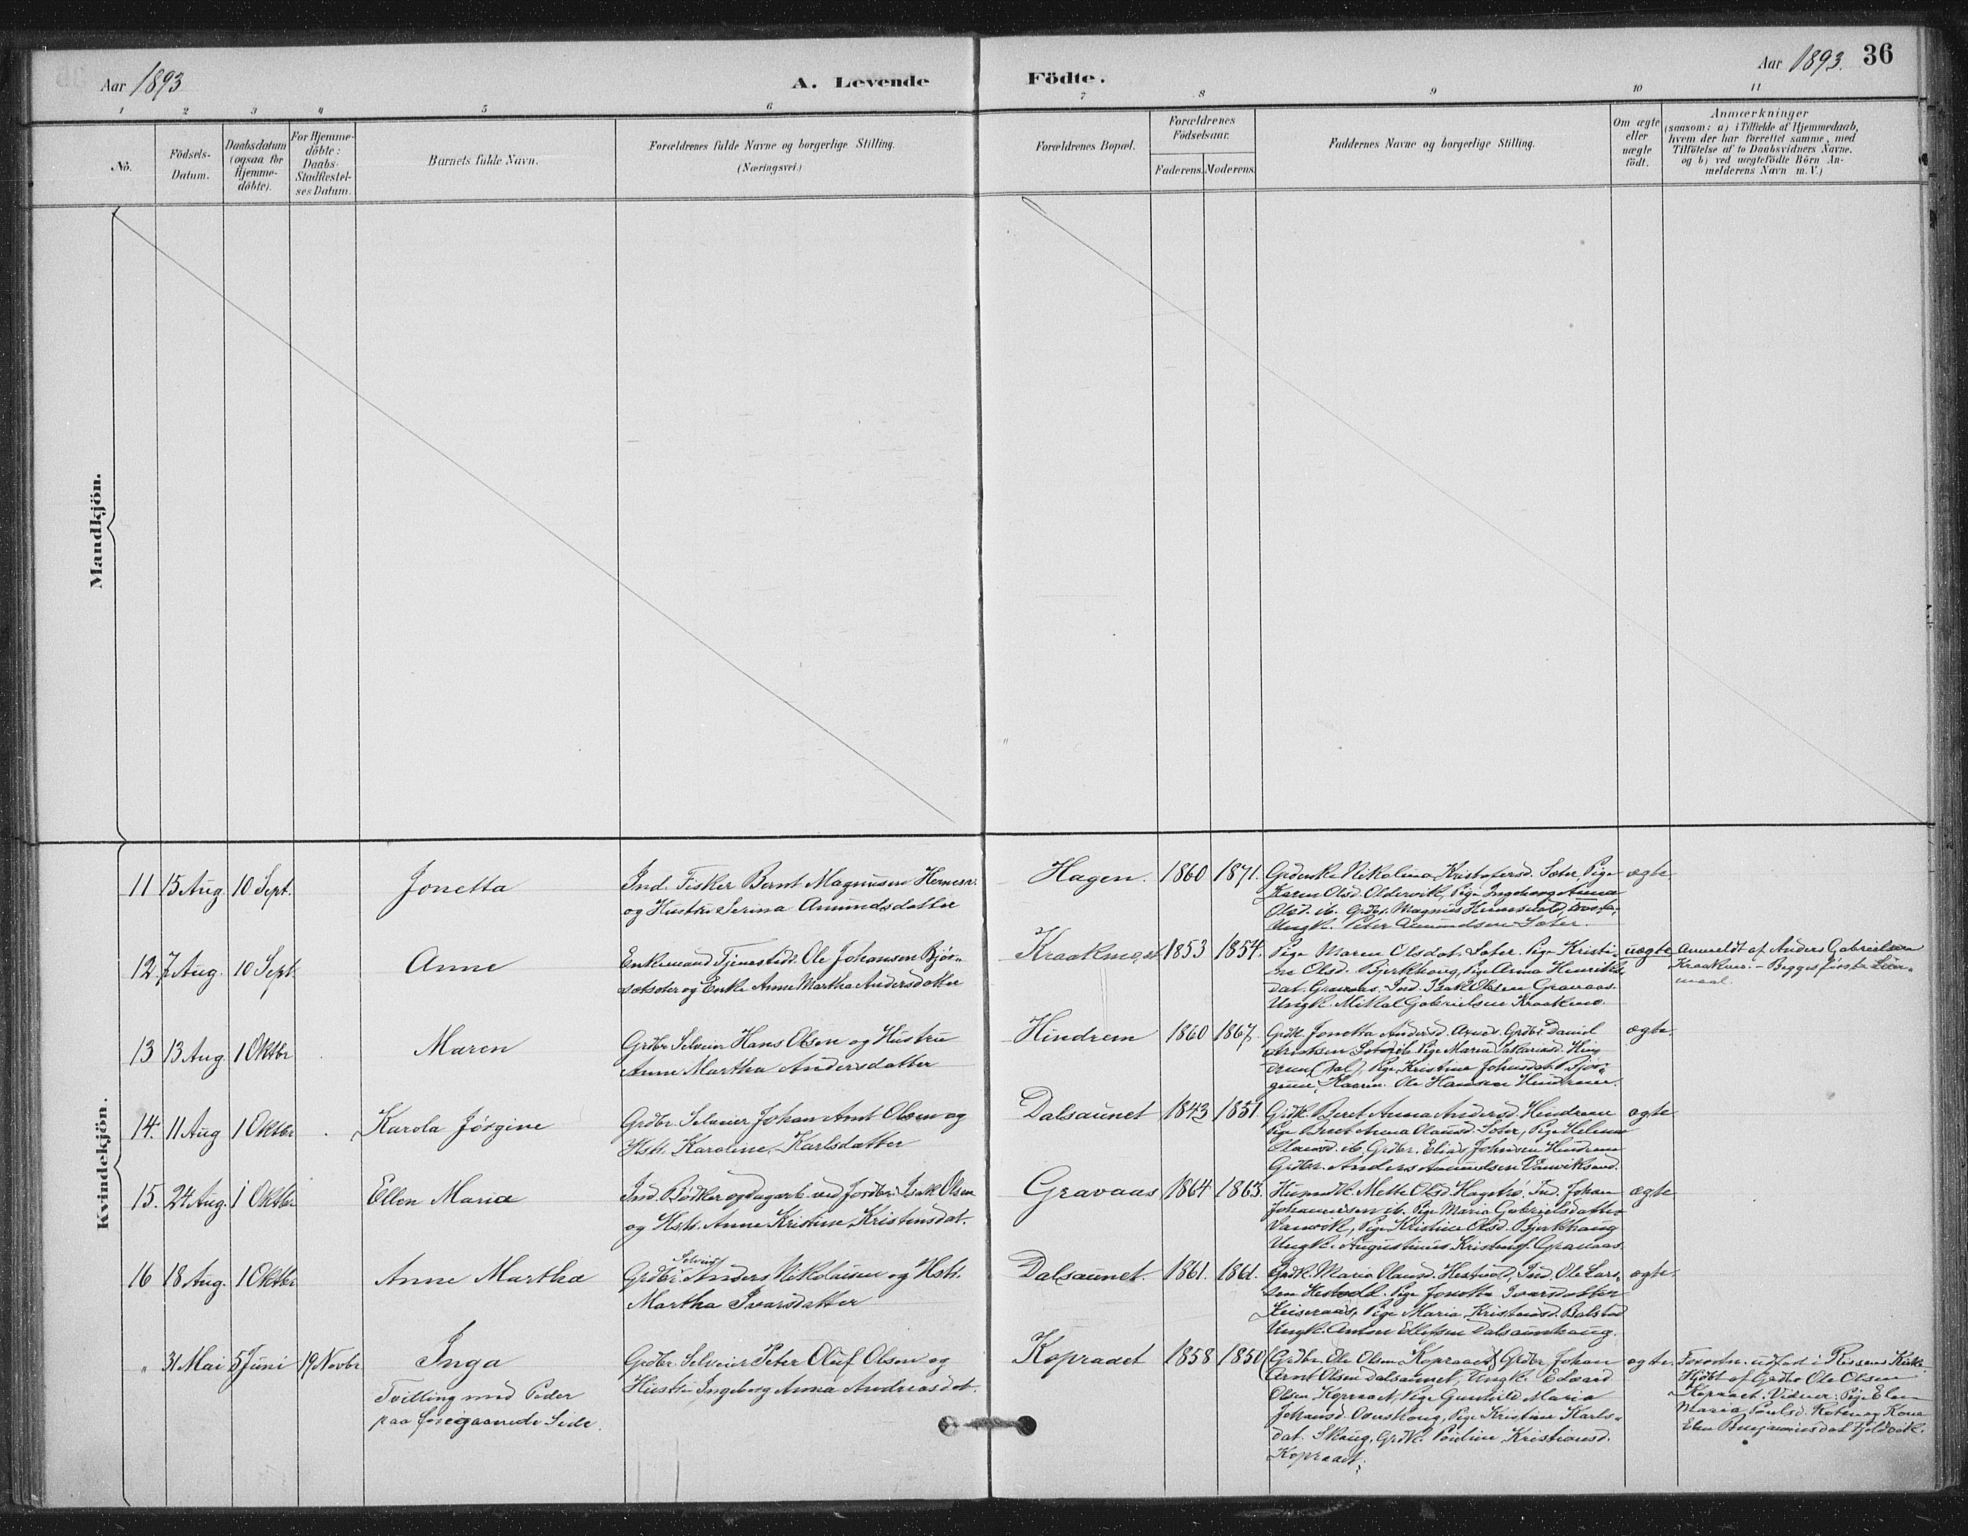 Aar 1893
A. Levende
Födte.
Aar 1893.
36
1 2 3 4 5 6 7 8 9 10 11
No.
Födsels-
Datum.
Daabsdatum
(ogsaa for
Hjemme-
döbte).
For Hjemme-
döbte:
Daabs-
Stadfæstel-
ses Datum.
Barnets fulde Navn.
Forældrenes fulde Navne og borgerlige Stilling.
(Næringsvei.)
Forældrenes Bopæl.
Forældrenes
Födselsaar.
Faderens.
Moderens.
Faddernes Navne og borgerlige Stilling.
Om ægte
eller
uægte
födt.
Anmærkninger
(saasom: a) i Tilfælde af Hjemmedaab,
hvem der har forrettet samme, med
Tilföielse af to Daabsvidners Navne,
og b) ved uægtefödte Börn An-
melderens Navn m. V.)
Mandkjön.
Kvindekjön.
11 15 Aug. 10 Sept.
Jonetta
Ind. Fisker Bernt Magnusen
og Hustru Serina Amundsdatter
Hagen. 1860 1871.
Nikolina Soter, Pige
Karen Olsd. Oldervik, Pige Ingeborg Anna
Olsd. ib. Grdbr. Magnus
Ungk. Peter Amundsen Soter.
ægte
12. 7 Aug. 10 Sept
Anne
Enkemand Tjenestedr. Ole Johansen Bjør-
og Enke Anne Martha Andersdatter
1853 1854.
Pige Maren Olsdat. Soter. Pige Kristi-
ne Olsd. Bjerkhaug, Pige Anna Henriks-
dat. Gravaas. Ind. Isak Olsen Gravaas.
Ungk. Mikal Gabrielsen
uægte
Anmeldt af Anders Gabrielsen
Begges første Leier-
maal.
13 13 Aug. 1 Oktbr
Maren
Grdbr. Selveier Hans Olsen og Hustru
Anne Martha Andersdatter
Hindrem 1860 1867.
Grdk. Jonetta Andersd. Grdbr. Daniel
Pige Maria Hin-
drem (Dal), Pige Kristine Johnsdat.
Ole Hansen Hindrem.
ægte
14. 11 Aug 1 Oktbr
Karola Jørgine
Grdbr. Selveier Johan Arnt Olsen og
Hst. Karoline Karlsdatter
Dalsaunet 1843 1851.
Grdk. Beret Anna Andersd. Hindrem
Pige Beret Anna Olausd. Soter, Pige Helene
Olausd. ib. Grdbr. Elias Johnsen Hindrem
Grdbr. Anders Amundsen
ægte
15. 24 Aug. 1 Oktbr
Ellen Maria
Ind. Bødker og dagarb. ved Jordbr. Isak Olsen
og Hst. Anne Kristine Kristensdat.
Gravaas 1864 1863.
Husmdk. Mette Olsd. Ind. Johan
Johannesen ib. Pige Maria Gabrielsdatter
Pige Kristine Olsd. Bjerkhaug
Ungk. Augustinus Gravaas
ægte
16 18 Aug. 1 Oktbr
Anne Martha
Selveier
Grdbr. Anders Nikolaisen og Hst.
Martha Ivarsdatter
Dalsaunet. 1861. 1861.
Grdk. Maria Olausd. Ind. Ole Lars-
sen Pige Jonetta Ivarsdatter
Pige Maria
Ungk. Anton Ellefsen Dalsaunhaug.
ægte.
" 31 Mai 5 Juni 19 Novbr
Inga
Tvilling med Peder
paa foregaaende Side.
Grdbr. Selveier Peter Oluf Olsen og
Hustru Ingeborg Anna Andreasdat.
Kopraaet 1858 1850
Grdbr. Ole Olsen Kopraaet, Grdbr Johan
Arnt Olsen Dalsaunet, Ungk. Edvard
Olsen Kopraaet, Pige Gunhild Maria
Johansd. Overskoug, Pige Kristine Karls-
dat. Skoug, Grdk. Pauline Kristiansd.
Kopraaet.
ægte
i Rissens Kirke.
Hjdøbt af Grdbr Ole Olsen
Kopraaet. Vidner: Pige Elen
Maria Paulsd. og Kone
Elen Benjaminsdat.